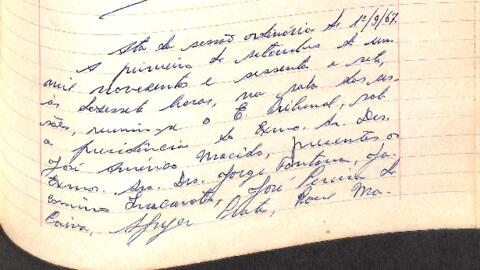 Ata da sessão ordinária de 1º/9/67.
A primeiro de setembro de um
mil novecentos e sessenta e sete,
às dezessete horas, na sala das ses-
sões, reuniu-se o E. Tribunal, sob
a presidência do Exmo. Sr. Des.
José Américo Macedo, presentes os
Exmos. Srs. Drs. Jorge Fontana, Ja-
comino Inacarato, José Pereira de
Paiva, Prates, Ma-